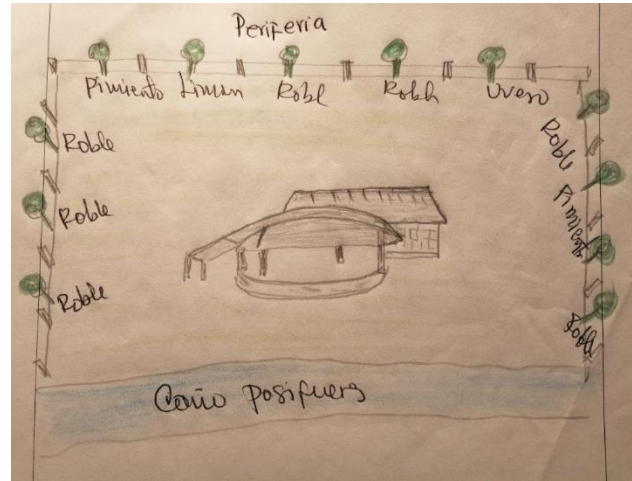 Periferia
Pimiento Liman Robl Robh Uvero
Roble
Roble
Roble
Roble
Pimiento
Roble
Caño Posifuers